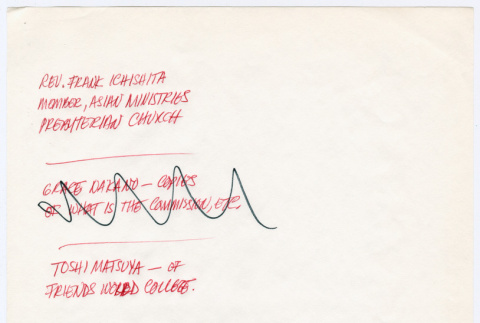 REV. FRANK ICHISHITA
MEMBER, ASIAN MINISTRIES
PRESBYTERIAN CHURCH
GRACE NAKANO — COPIES
OF WHAT IS THE COMMISSION, ETC.
TOSHI MATSUYA — OF
FRIENDS WORLD COLLEGE.